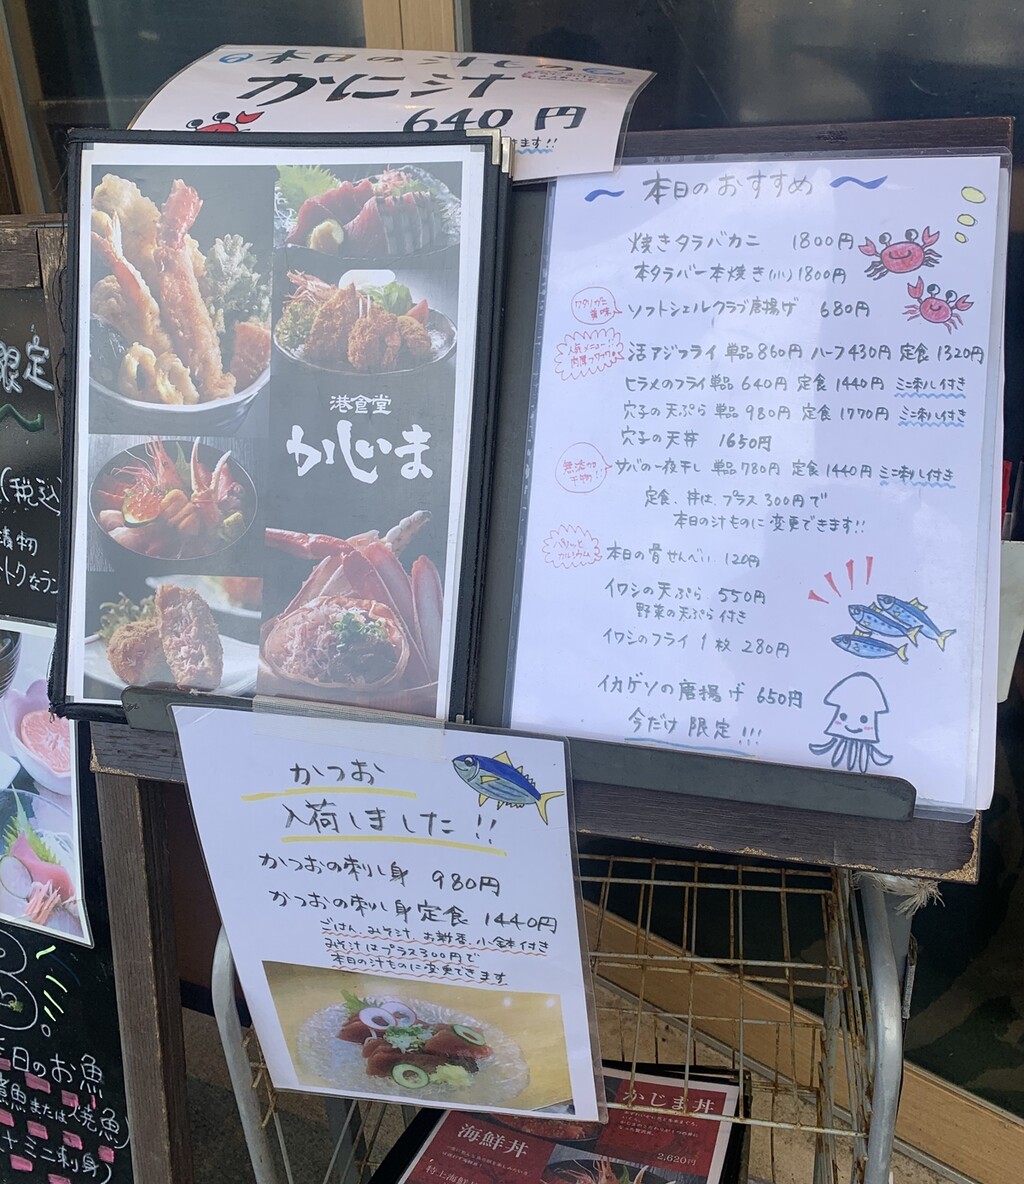 本日の汁もの
かに汁
640円
きます!!
港食堂
かじま
本日のおすすめ
焼きタラバカニ 1800円
本タラバ一本焼き(小)1800円
ソフトシェルクラブ唐揚げ 680円
人気メニュー!!
活アジフライ 単品860円 ハーフ430円 定食1320円
ヒラメのフライ 単品640円 定食1440円 ミニ刺し付き
穴子の天ぷら 単品980円 定食1770円 ミニ刺し付き
穴子の天丼 1650円
無添加
干物!!
サバの一夜干し 単品780円 定食1440円 ミニ刺し付き
定食、丼は、プラス300円で
本日の汁ものに変更できます!!
パリッと
カルシウム
本日の骨せんべい 120円
イワシの天ぷら 550円
野菜の天ぷら付き
イワシのフライ 1枚 280円
イカゲソの唐揚げ 650円
今だけ限定!!!
かつお
入荷しました!!
かつおの刺し身 980円
かつおの刺し身定食 1440円
ごはん、みそ汁、お新香、小鉢付き
みそ汁はプラス300円で
本日の汁ものに変更できます
限定
(税込)
漬物
トクなラン
日のお魚
煮魚または焼魚)
ミニ刺身)
かじま丼
2,620円
海鮮丼
特上海鮮